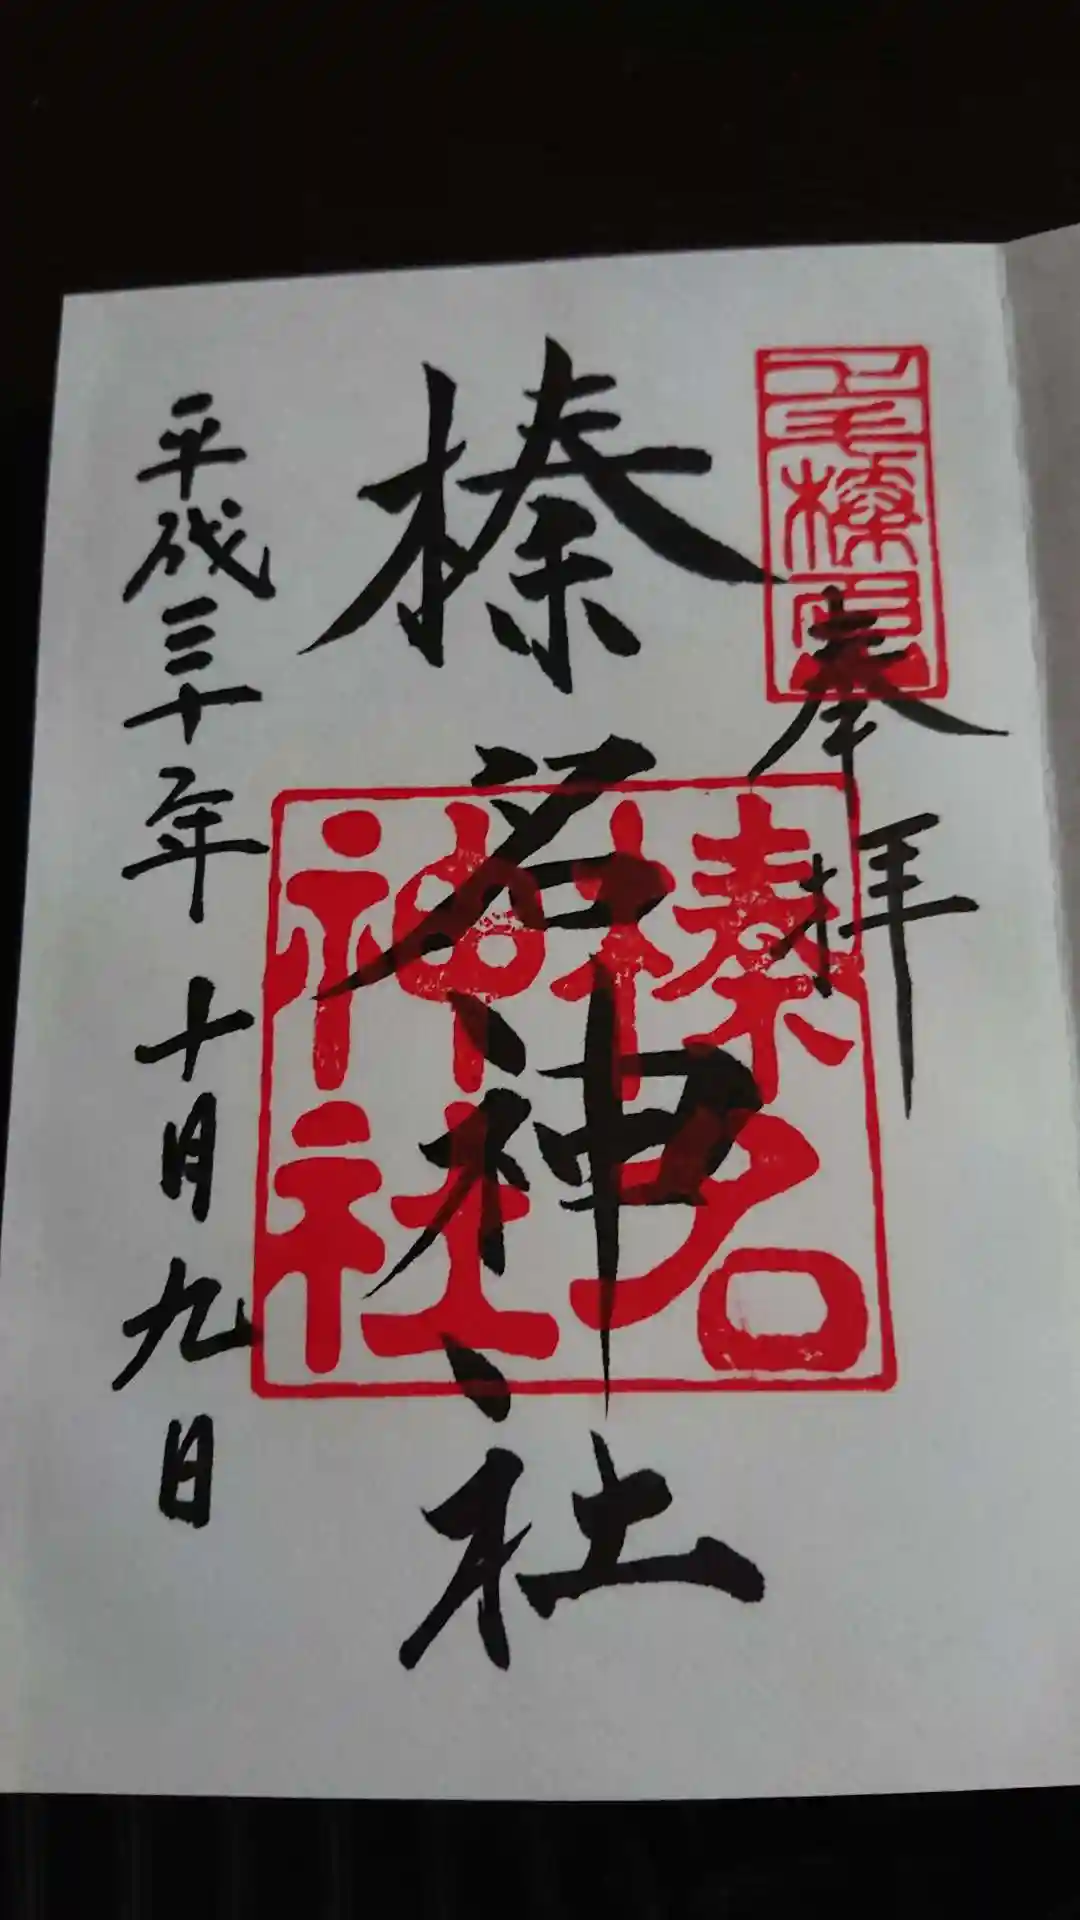 奉拝
榛名神社
榛名
神社
平成三十年十月九日